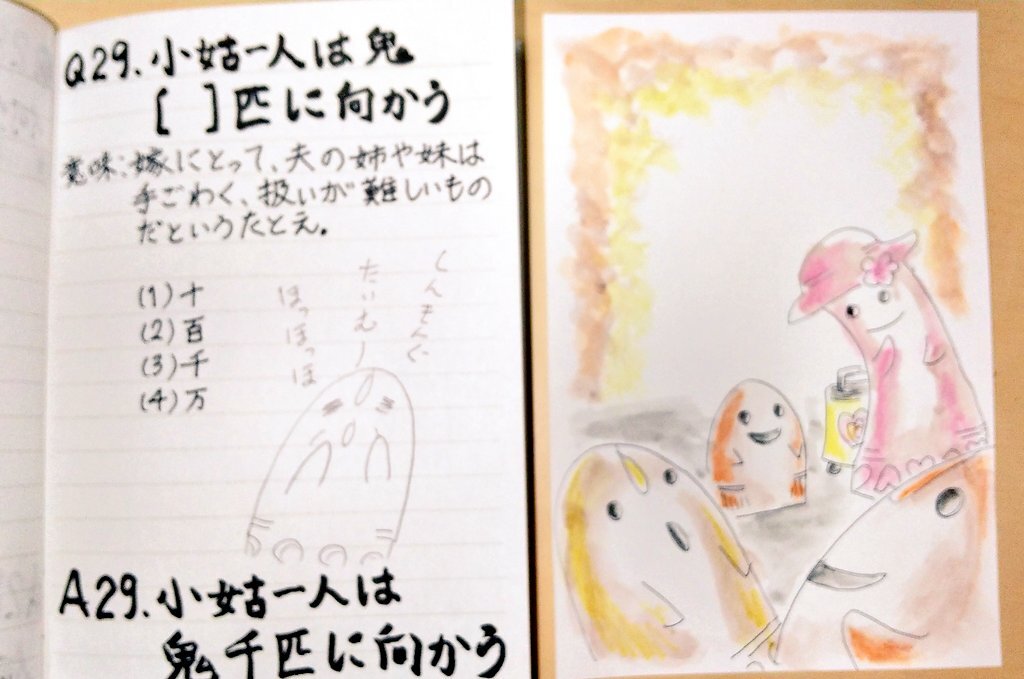 Q29. 小姑一人は鬼
[ ]匹に向かう
意味:嫁にとって、夫の姉や妹は
手ごわく、扱いが難しいもの
だというたとえ。
(1)十
(2)百
(3)千
(4)万
くんもんぐ
たいむー
ほっほっほ
A29. 小姑一人は
鬼千匹に向かう